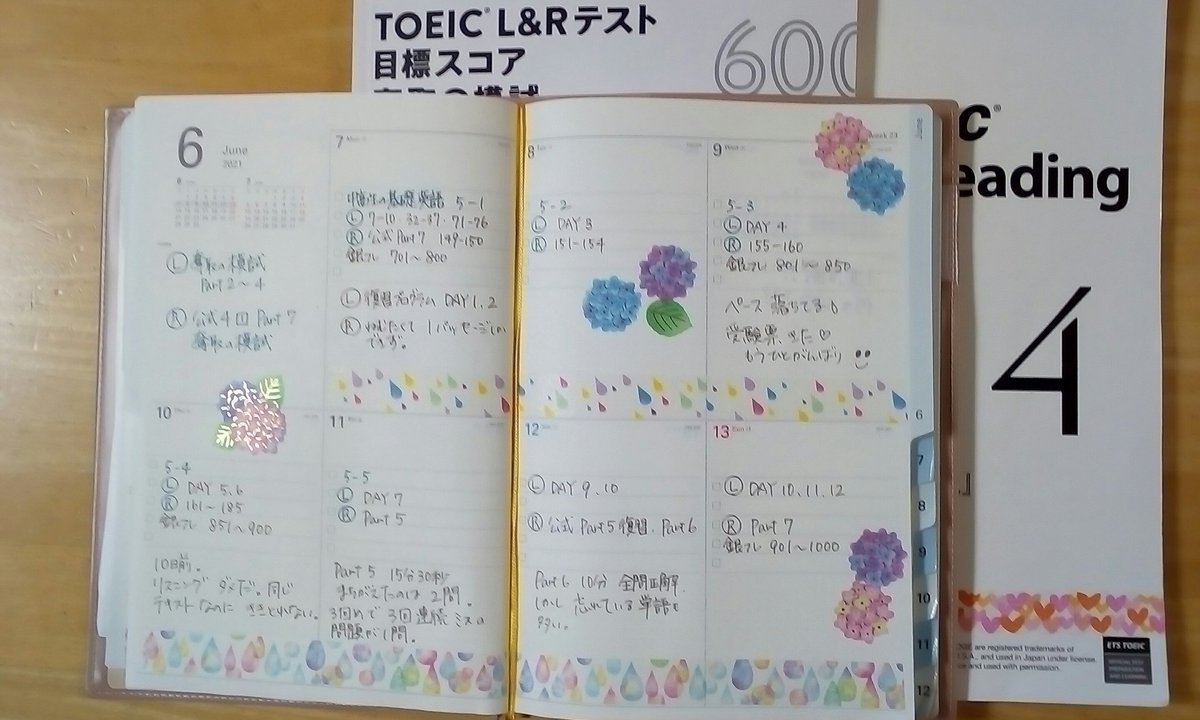 TOEIC® L&Rテスト
目標スコア
600
6 June
2021
Ⓛ 奪取の模試
Part 2~4
Ⓡ 公式4回 Part 7
奪取の模試
7
中高生の基礎英語 5-1
Ⓛ 7-10 32-37 71-76
Ⓡ 公式 Part7 149-150
銀フレ 701~800
Ⓛ 復習プログラム DAY 1, 2
Ⓡ ねむたくて 1パッセージしか
できず。
8
5-2
Ⓛ DAY 3
Ⓡ 151-154
Week 23
9
5-3
Ⓛ DAY 4
Ⓡ 155-160
銀フレ 801~850
ペース 落ちてる
受験票 きた♡
もうひとがんばり
June
10
5-4
Ⓛ DAY 5.6
Ⓡ 161~185
銀フレ 851~900
10日前。
リスニング ダメだ。同じ
テキストなのに ききとれない。
11
5-5
Ⓛ DAY 7
Ⓡ Part 5
Part 5 15分30秒
まちがえたのは 2問。
3回めで 3回連続ミスは
問題が1問。
12
Ⓛ DAY 9. 10
Ⓡ 公式 Part 5 復習. Part 6
Part 6 10分 全問正解
しかし 忘れている 単語も
多い。
13
Ⓛ DAY 10. 11. 12
Ⓡ Part 7
銀フレ 901~1000
6
7
8
9
10
11
12
c®
eading
4
are registered trademarks of
U.S.A., and used in Japan under license.
and used with permission.
ETS TOEIC